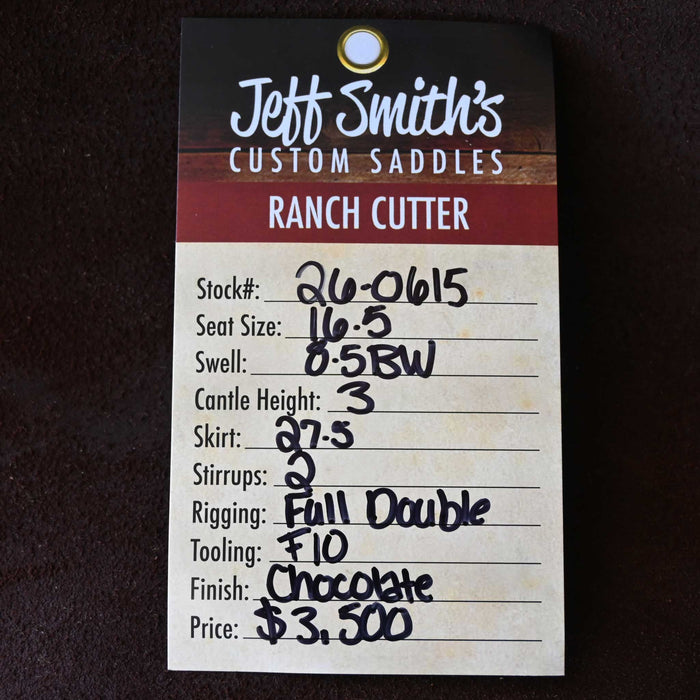 Jeff Smith's
CUSTOM SADDLES
RANCH CUTTER
Stock#: 26-0615
Seat Size: 16.5
Swell: 8.5BW
Cantle Height: 3
Skirt: 27.5
Stirrups: 2
Rigging: Full Double
Tooling: F10
Finish: Chocolate
Price: $3,500